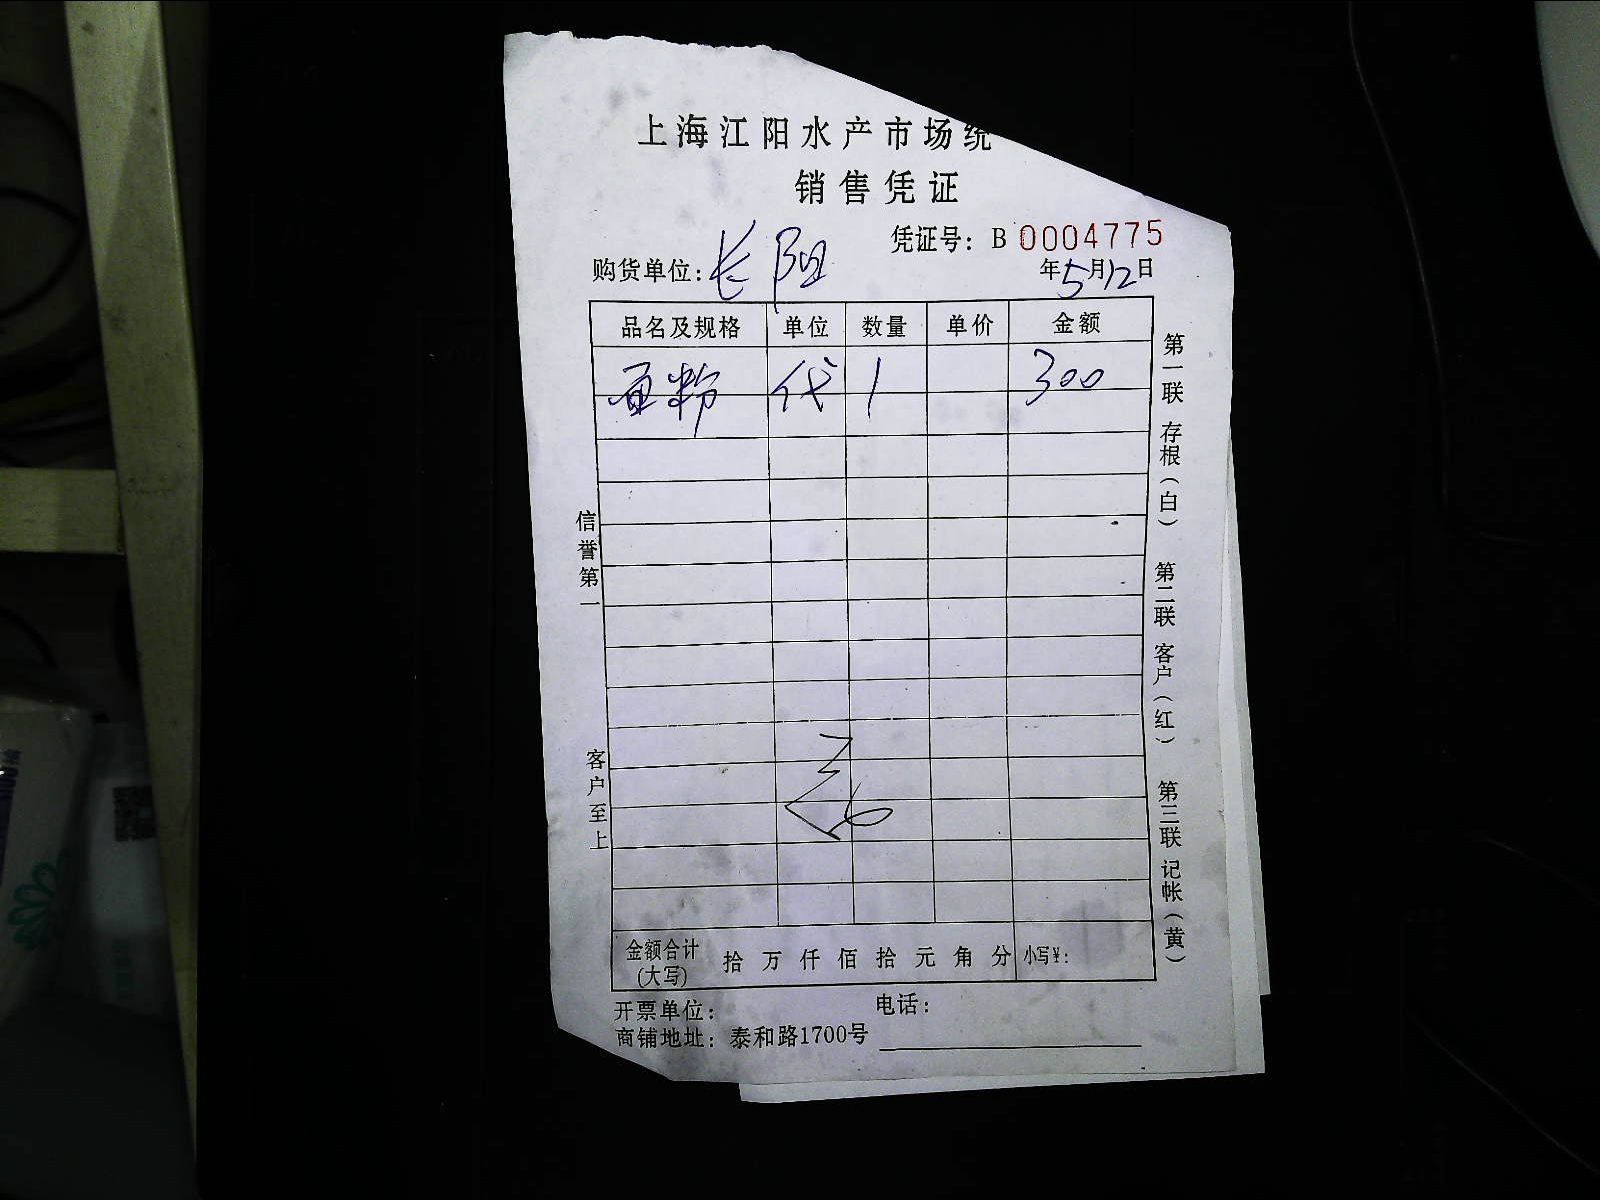 上海江阳水产市场统
销售凭证
凭证号：B 0004775
购货单位：长阳
年5月12日
品名及规格 单位 数量 单价 金额
面粉 代 1 300
信誉第一
客户至上
第一联 存根（白） 第二联 客户（红） 第三联 记帐（黄）
金额合计（大写） 拾 万 仟 佰 拾 元 角 分 小写¥：
开票单位： 电话：
商铺地址：泰和路1700号